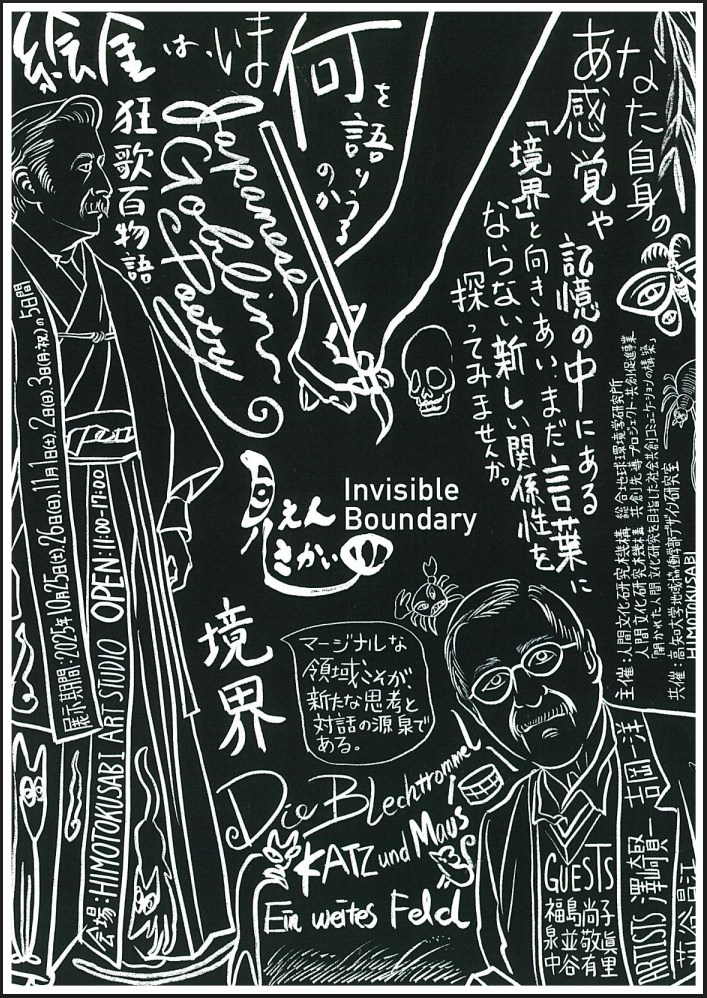 絵金は、いま
何を語りうる
のか
あなた自身の
感覚や
記憶の中にある
「境界」と向きあい、まだ言葉に
ならない新しい関係性を
探ってみませんか。
狂歌百物語
Japanese
Goblin
Poetry
展示期間:2025年10月25日(土),26日(日),11月1日(土),2日(日),3日(月・祝)の5日間
会場:HIMOTOKUSABI ART STUDIO OPEN:11:00-17:00
見えん
きかい
Invisible
Boundary
境界
マージナルな
領域こそが、
新たな思考と
対話の源泉で
ある。
主催:人間文化研究機構 総合地球環境学研究所
人間文化研究機構 「共創」先導プロジェクト 共創促進事業
「開かれた人間文化研究を目指した社会共創コミュニケーションの構築」
共催:高知大学地域協働学部デザイン研究室
HIMOTOKUSABI
Die Blechtrommel
KATZ und Maus
Ein weites Feld
GUESTS
福島尚子
泉並敬眞
中谷有里
ARTISTS 澤崎賢一
吉岡一洋